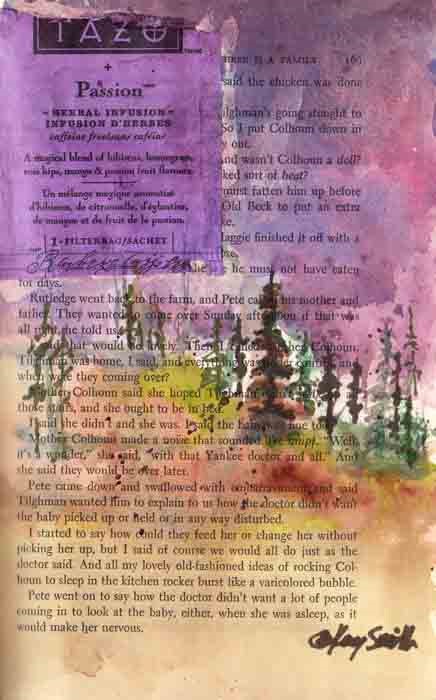 TAZO
Passion
HERBAL INFUSION
INFUSION D'HERBES
caffeine free/sans caféine
A magical blend of hibiscus, lemongrass,
rose hips, mango & passion fruit flavours.
Un mélange magique aromatisé
d'hibiscus, de citronnelle, d'églantier,
de mangue et de fruit de la passion.
1-FILTERBAG/SACHET
IS A FAMILY 165
said the chicken was done
Tilghman's going straight to
So I put Colhoun down in
out.
And wasn't Colhoun a doll?
sort of heat?
must fatten him up before
Old Beck to put an extra
Maggie finished it off with a
he must not have eaten
for days.
Rutledge went back to the farm, and Pete called his mother and
father. They wanted to come over Sunday afternoon if that was
all right, she told us.
I said that would be lovely. Then I Colhoun.
Tilghman was home, I said, and everything was and
when were they coming over?
Mother Colhoun said she hoped Tilghman
those stairs, and she ought to be in bed.
I said she didn't and she was. I said the baby was due to
Mother Colhoun made a noise that sounded like "Well,
it's a wonder," she said, "with that Yankee doctor and all." And
she said they would be over later.
Pete came down and swallowed with embarrassment and said
Tilghman wanted him to explain to us how the doctor didn't want
the baby picked up or held or in any way disturbed.
I started to say how could they feed her or change her without
picking her up, but I said of course we would all do just as the
doctor said. And all my lovely old-fashioned ideas of rocking Col-
houn to sleep in the kitchen rocker burst like a varicolored bubble.
Pete went on to say how the doctor didn't want a lot of people
coming in to look at the baby, either, when she was asleep, as it
would make her nervous.
Smith